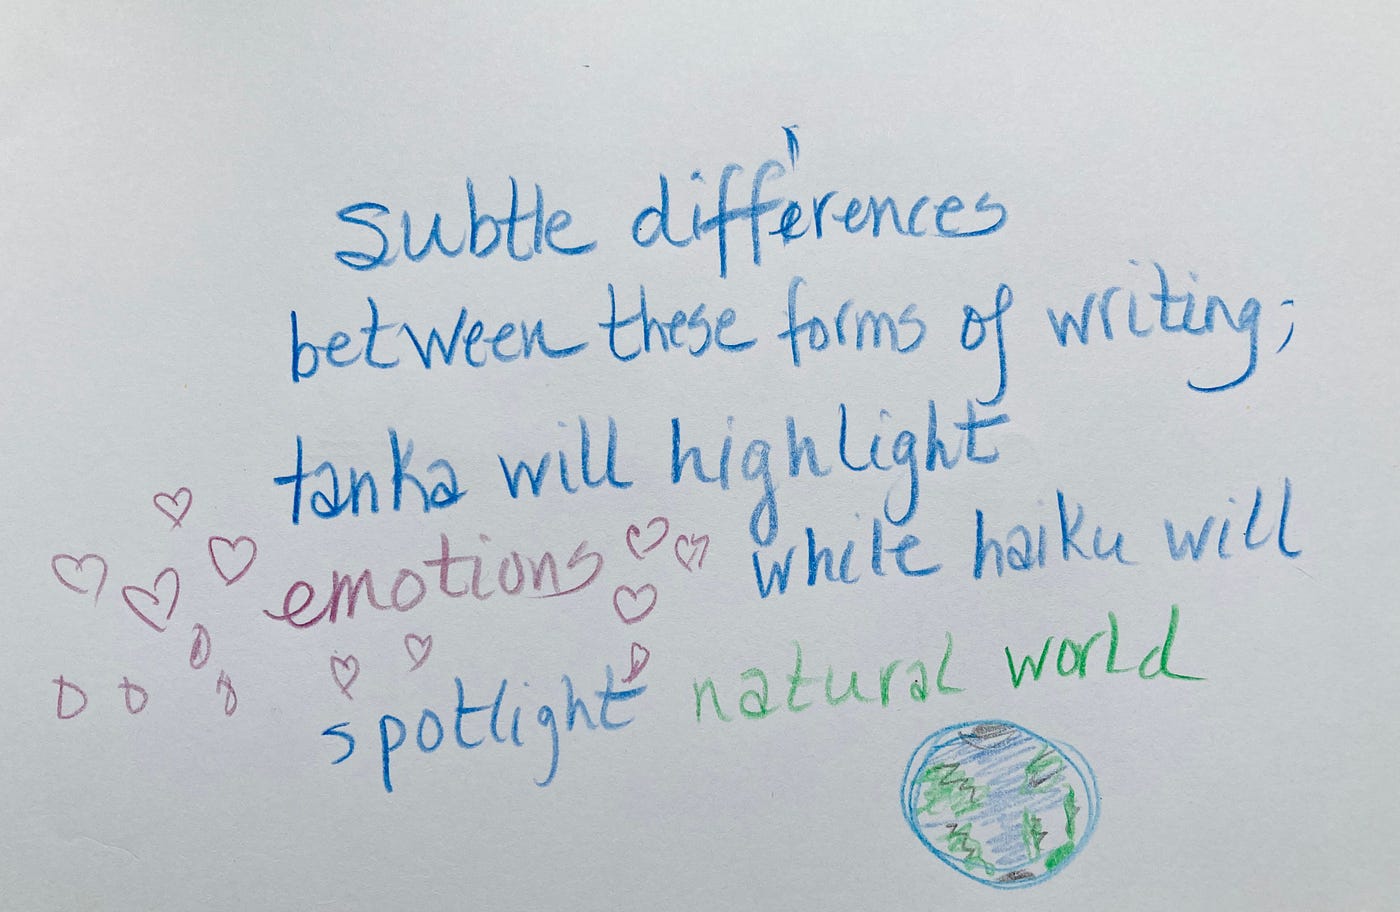 Subtle differences
between these forms of writing;
tanka will highlight
emotions while haiku will
spotlight natural world